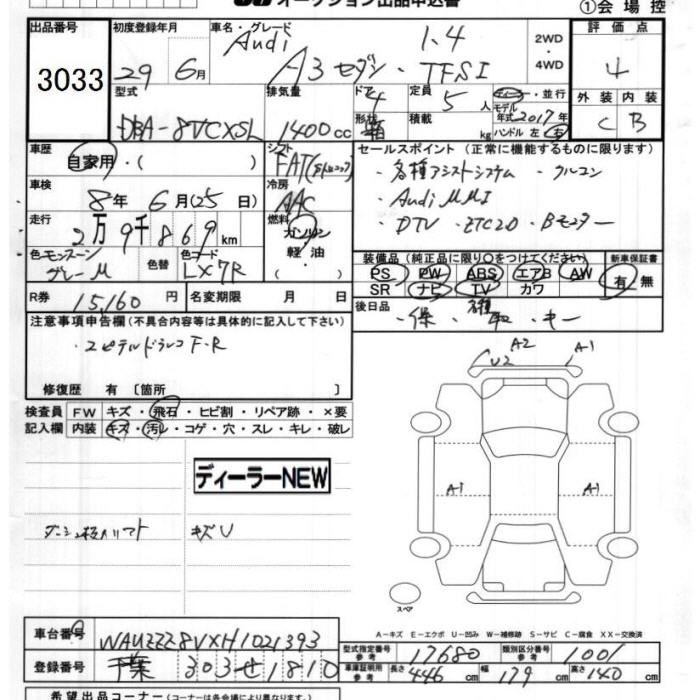 オークション出品申込書
①会場控
出品番号 3033
初度登録年月 29 6月
車名・グレード Audi A3 セダン・1.4 TFSI
2WD ・4WD
評価点 4
外装 C 内装 B
型式 DBA-8VCXSL
排気量 1400cc
ドア 4 形状 箱
定員 5人 積載 kg
ディーラー・並行
モデル年式 2017年
ハンドル 左 右
車歴 自家用・( )
シフト FAT
冷房 AAC
燃料 ガソリン 軽油・
車検 8年 6月(25日)
走行 2万9千869km
色 モンスーングレーM 色替 色コード LX7R
R券 15,160円 名変期限 月 日
セールスポイント (正常に機能するものに限ります)
・各種アシストシステム ・クルコン
・Audi MMI
・DTV ・ETC2.0 ・Bモニター
装備品 (純正品に限り○をつけてください) 新車保証書
PS PW ABS エアB AW 有・無
SR ナビ TV カワ
後日品 ・保 ・取 ・キー
注意事項申告欄 (不具合内容等は具体的に記入して下さい)
修復歴 有 〔箇所 〕
検査員記入欄
FW キズ・飛石・ヒビ割・リペア跡・×要
内装 キズ・汚レ・コゲ・穴・スレ・キレ・破レ
ディーラーNEW
キズU
U2 A2 A-1
A1 A1
スペア
A-キズ E-エクボ U-凹み W-補修跡 S-サビ C-腐食 XX-交換済
車台番号 WAUZZZ8VXH1021393
登録番号 千葉 303 せ 1810
型式指定番号参考 17680 類別区分番号参考 1001
車庫証明用参考 長さ 446cm 幅 179cm 高さ 140cm
希望出品コーナー (コーナーは各会場により異なります。)